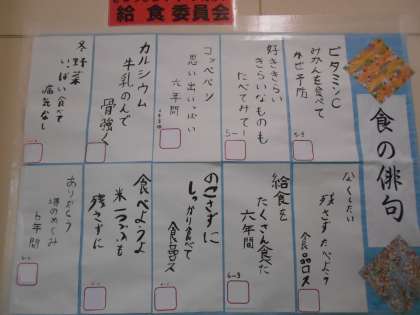 給食委員会
食の俳句
ビタミンC
みかんを食べて
かぜ予防
好ききらい
きらいなものも
たべてみて!
コッペパン
思い出いっぱい
六年間
カルシウム
牛乳のんで
骨強く
冬野菜
いっぱい食べて
病気なし
なくしたい
残さずたべよう
食品ロス
給食を
たくさん食べた
六年間
のこさずに
しっかり食べて
食品ロス
食べようよ
米一つぶも
残さずに
ありがとう
海のめぐみ
6年間